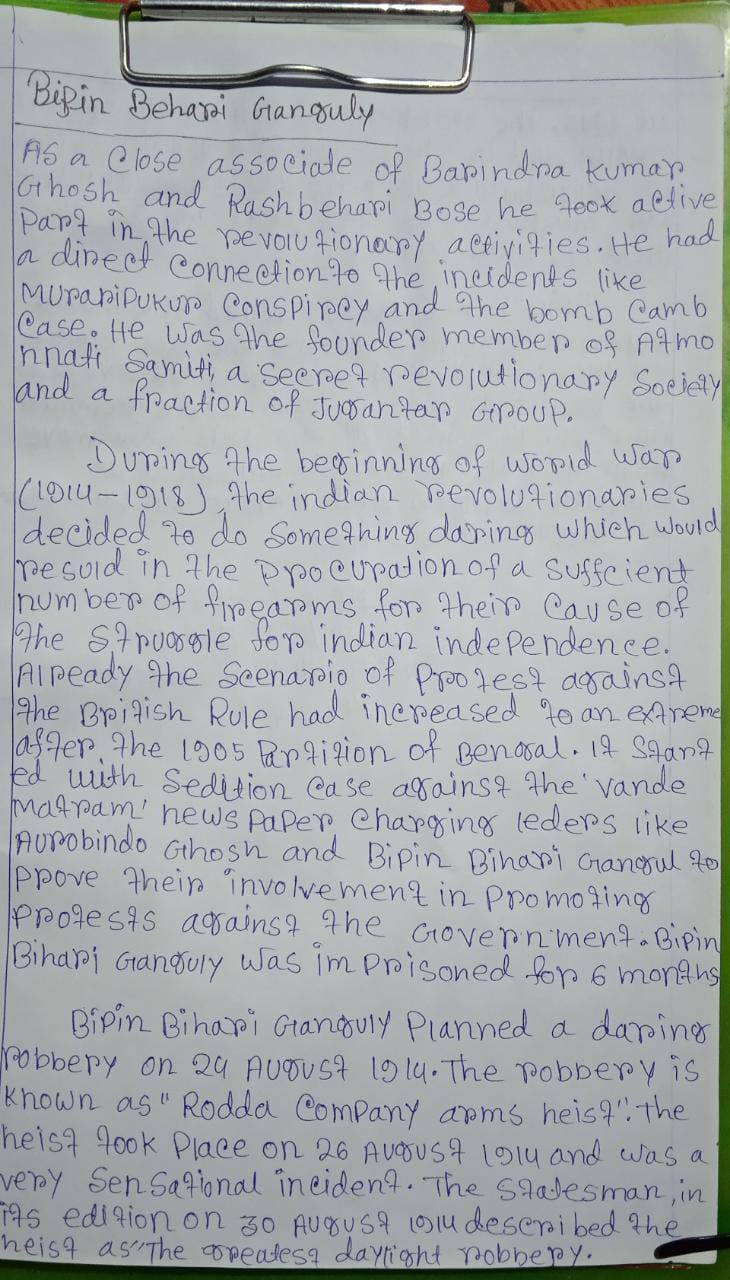 Bipin Behari Ganguly
As a close associate of Barindra Kumar
Ghosh and Rashbehari Bose he took active
Part in the revolutionary activities. He had
a direct connection to the incidents like
Muraripukur conspirey and the bomb camb
case. He was the founder member of Atmo
nnati Samiti, a secret revolutionary Society
and a fraction of Jugantar Group.
During the beginning of world war
(1914-1918), the indian revolutionaries
decided to do something daring which would
resuld in the procuration of a suffcient
number of firearms for their cause of
the struggle for indian independence.
Already the scenario of protest against
the British Rule had increased to an extreme
after the 1905 Partition of Bengal. it start
ed with Sedition case against the 'vande
matram' news paper charging leders like
Aurobindo Ghosh and Bipin Bihari Gangul to
prove their involvement in promoting
protests against the Government. Bipin
Bihari Ganguly was imprisoned for 6 months
Bipin Bihari Ganguly Planned a daring
robbery on 24 August 1914. The robbery is
known as "Rodda Company arms heist". the
heist took Place on 26 August 1914 and was a
very sensational incident. The statesman, in
its edition on 30 August 1914 described the
heist as "The greatest daylight robbery.